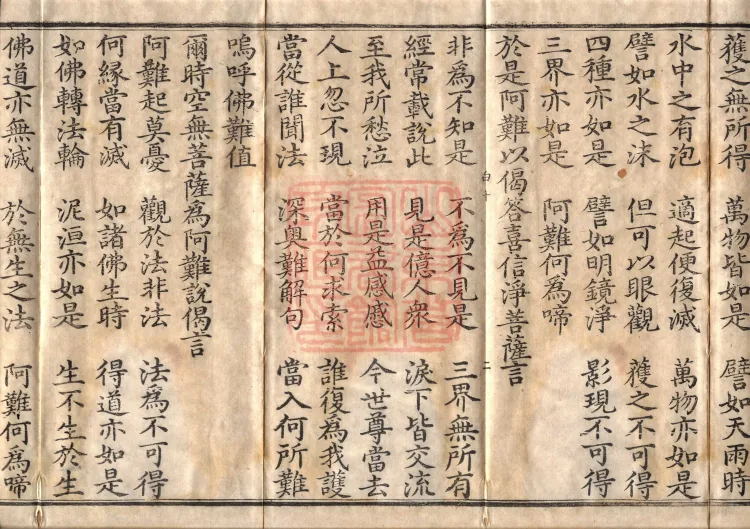 蒦之無所得　萬物皆如是　譬如天雨時
水中之有泡　適起便復滅　萬物亦如是
譬如水之沫　但可以眼觀　蒦之不可得
四種亦如是　譬如明鏡淨　影現不可得
三界亦如是　阿難何為啼
於是阿難以偈答喜信淨菩薩言
非為不知是　不為不見是　三界無所有
經常載說此　見是億人衆　淚下皆交流
至我所愁泣　用是益感感　今世尊當去
人上忽不現　當於何求索　誰復為我護
當從誰聞法　深奧難解句　當入何所難
嗚呼佛難值
爾時空無菩薩為阿難說偈言
阿難起莫憂　觀於法非法　法為不可得
何緣當有滅　如諸佛生時　得道亦如是
如佛轉法輪　泥洹亦如是　生不生於生
佛道亦無滅　於無生之法　阿難何為啼
白十
二